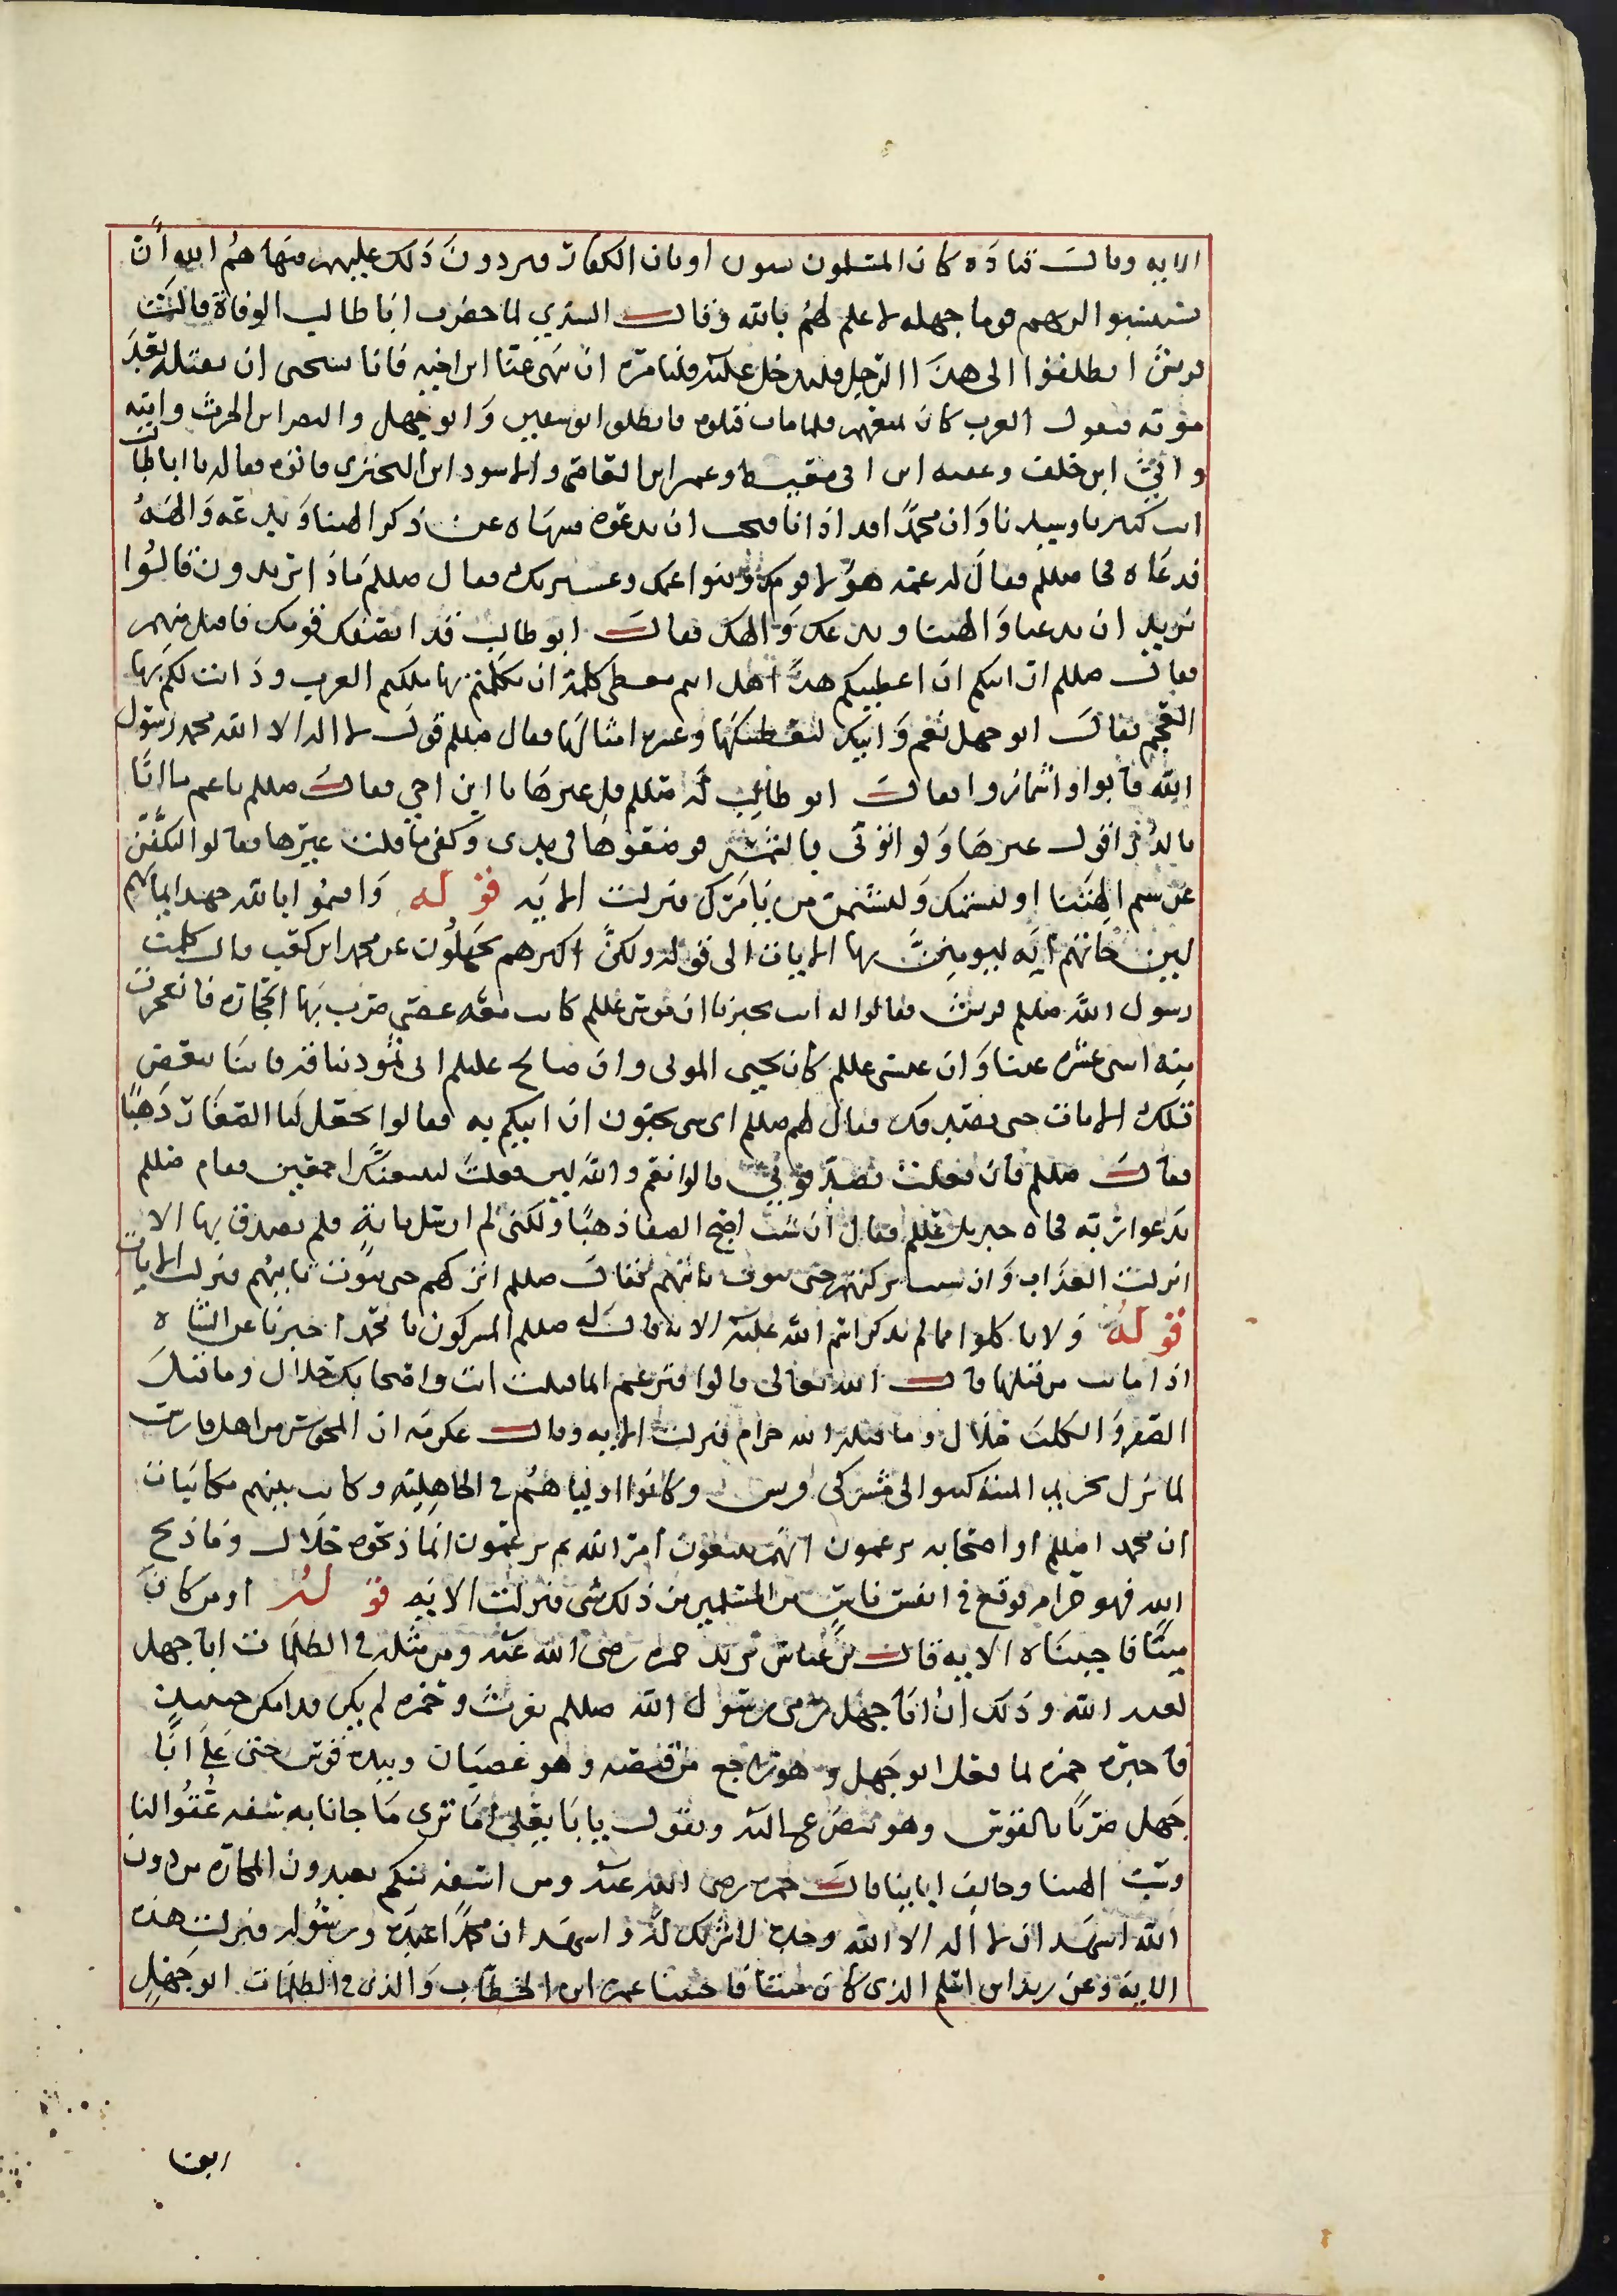 الايه وقال قتادة كان المسلمون يسبون اوثان الكفار فيردون ذلك عليهم فنهاهم الله ان
يستسبوا لربهم قوما جهله لا علم لهم بالله وقال السدي لما حضرت ابا طالب الوفاة قالت
قريش انطلقوا الى هذا الرجل فلندخل عليه فلنامره ان ينهى عنا ابن اخيه فانا نستحى ان نقتله بعد
موته فتقول العرب كان يمنعهم فلما مات قتلوه فانطلق ابو سفيان وابو جهل والنضر ابن الحرث واميه
وابي ابن خلف وعقبه ابن ابي معيط وعمر ابن العاص والاسود ابن البختري فاتوه فقالو يا ابا طالب
انت كبيرنا وسيدنا وان محمدا قد اذانا فنحب ان تدعوه فتنهاه عن ذكر الهتنا وندعه والهه
فدعاه فجا صللم فقال له عمه هولا قومك وبنوا عمك وعشيرتك فقال صللم ماذا تريدون قالوا
نريد ان تدعنا والهتنا وندعك والهك فقال ابو طالب قد انصفك قومك فاقبل منهم
فقال صللم ارايتكم ان اعطيتكم هذا هل انتم معطى كلمة ان تكلمتم بها ملكتم العرب ودانت لكم بها
العجم فقال ابو جهل نعم وابيك لنعطينكها وعشر امثالها فقال صللم قول لا اله الا الله محمد رسول
الله فابوا واشمازوا فقال ابو طالب له صللم قل غيرها يا ابن اخي فقال صللم يا عم ما انا
بالذي اقول غيرها ولو اتوني بالشمس فوضعوها في يدى وكفى ما قلت غيرها فقالوا لتكفن
عن شتم الهتنا او لنشتمك ولنشتمن من يامرك فنزلت الايه قوله واقسموا بالله جهد ايمانهم
لين جاتهم ايه ليومنن بها الايات الى قوله ولكن اكثرهم يجهلون عن محمد ابن كعب قال كلمت
رسول الله صللم قريش فقالوا له انت تخبرنا ان موسى عللم كانت معه عصى ضرب بها الحجاره فانفجرت
منه اثنى عشره عينا وان عيسى عللم كان يحيى الموتى وان صالح عليلم اتى ثمود بناقه فاتنا ببعض
تلك الايات حتى نصدقك فقال لهم صللم اى شى تحبون ان اتيكم به فقالوا تجعل لنا الصفا ذهبا
فقال صللم فان فعلت تصدقوني قالوا نعم والله لين فعلت لنتبعنك اجمعين فقام صللم
يدعوا ربه فجاه جبريل عللم فقال ان شئت اصبح الصفا ذهبا ولكنى لم ارسل بايه فلم يصدق بها الا
انزلت العذاب وان شئت تركتهم حتى يتوب تائبهم فقال صللم اتركهم حتى يتوب تائبهم فنزلت الايات
قوله ولا تاكلوا مما لم يذكر اسم الله عليه الايه قال له صللم المشركون يا محمد اخبرنا عن الشاه
اذا ماتت من قتلها قال الله تعالى قالوا فتزعم ان ما قتلت انت واصحابك حلال وما قتل
الصقر والكلب حلال وما قتله الله حرام فنزلت الايه وقال عكرمه ان المجوس من اهل فارس
لما نزل تحريم الميته كتبوا الى مشركى قريش وكانوا اولياهم في الجاهليه وكانت بينهم مكاتبات
ان محمدا صللم او اصحابه يزعمون انهم يتبعون امر الله ثم يزعمون انما ذبحوه حلال وما ذبح
الله فهو حرام فوقع في انفس ناس من المسلمين من ذلك شى فنزلت الايه قوله اومن كان
ميتا فاحييناه الايه قال بن عباس يريد حمزه رضى الله عنه ومن مثله في الظلمات ابا جهل
لعنه الله وذلك ان ابا جهل رمى رسول الله صللم بفرث وحمزه لم يكن قد امن حينئذ
فاخبره حمزه لما فعل ابو جهل وهو راجع من قنصه وهو غضبان وبيده قوس حتى على ابا
جهل ضربا بالقوس وهو يتضرع اليه ويقول يا ابا يعلى اما ترى ما جانا به سفه عقولنا
وسب الهتنا وخالف ابابينا قال حمزه رضى الله عنه ومن اسفه منكم تعبدون الحجاره من دون
الله اشهد ان لا اله الا الله وحده لا شريك له واشهد ان محمدا عبده ورسوله فنزلت هذه
الايه وعن زيد ابن اسلم الذى كان ميتا فاحيينا عمر ابن الخطاب والذى في الظلمات ابو جهل